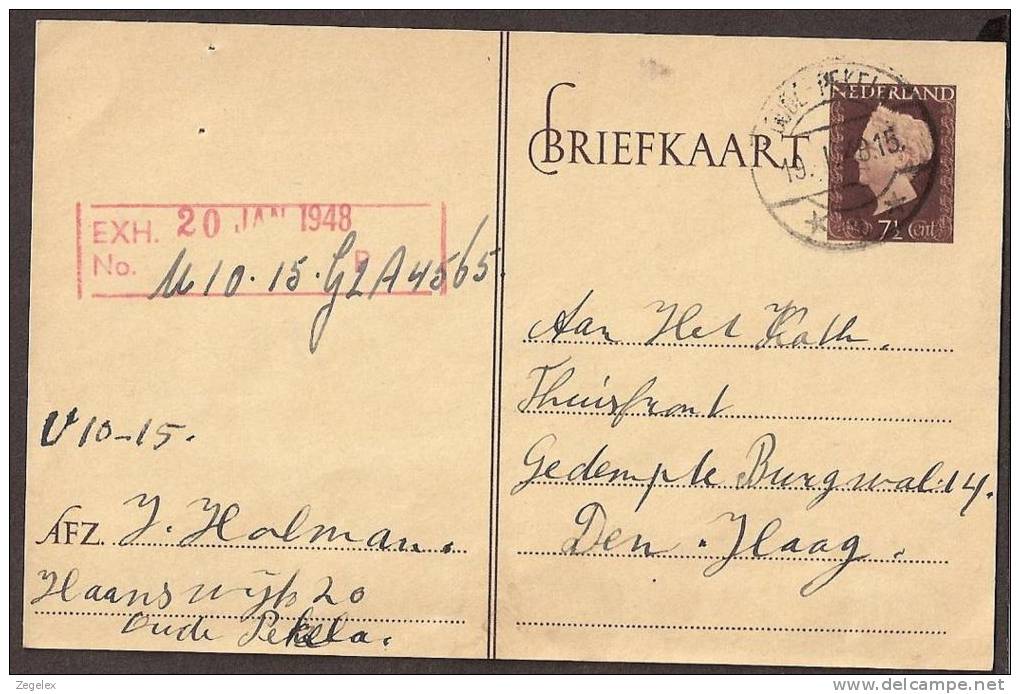 EXH. 20 JAN 1948
No. P
U 10.15.G2A4565.
V 10-15.
AFZ. J. Holman.
Haanswijk 20
Oude Pekela.
BRIEFKAART
OUDE-PEKEL
19. 8.15.
NEDERLAND
7½ Cent
Aan Het Kath.
Thuisfront
Gedempte Burgwal 14.
Den Haag.
Zegelex
delcampe.net